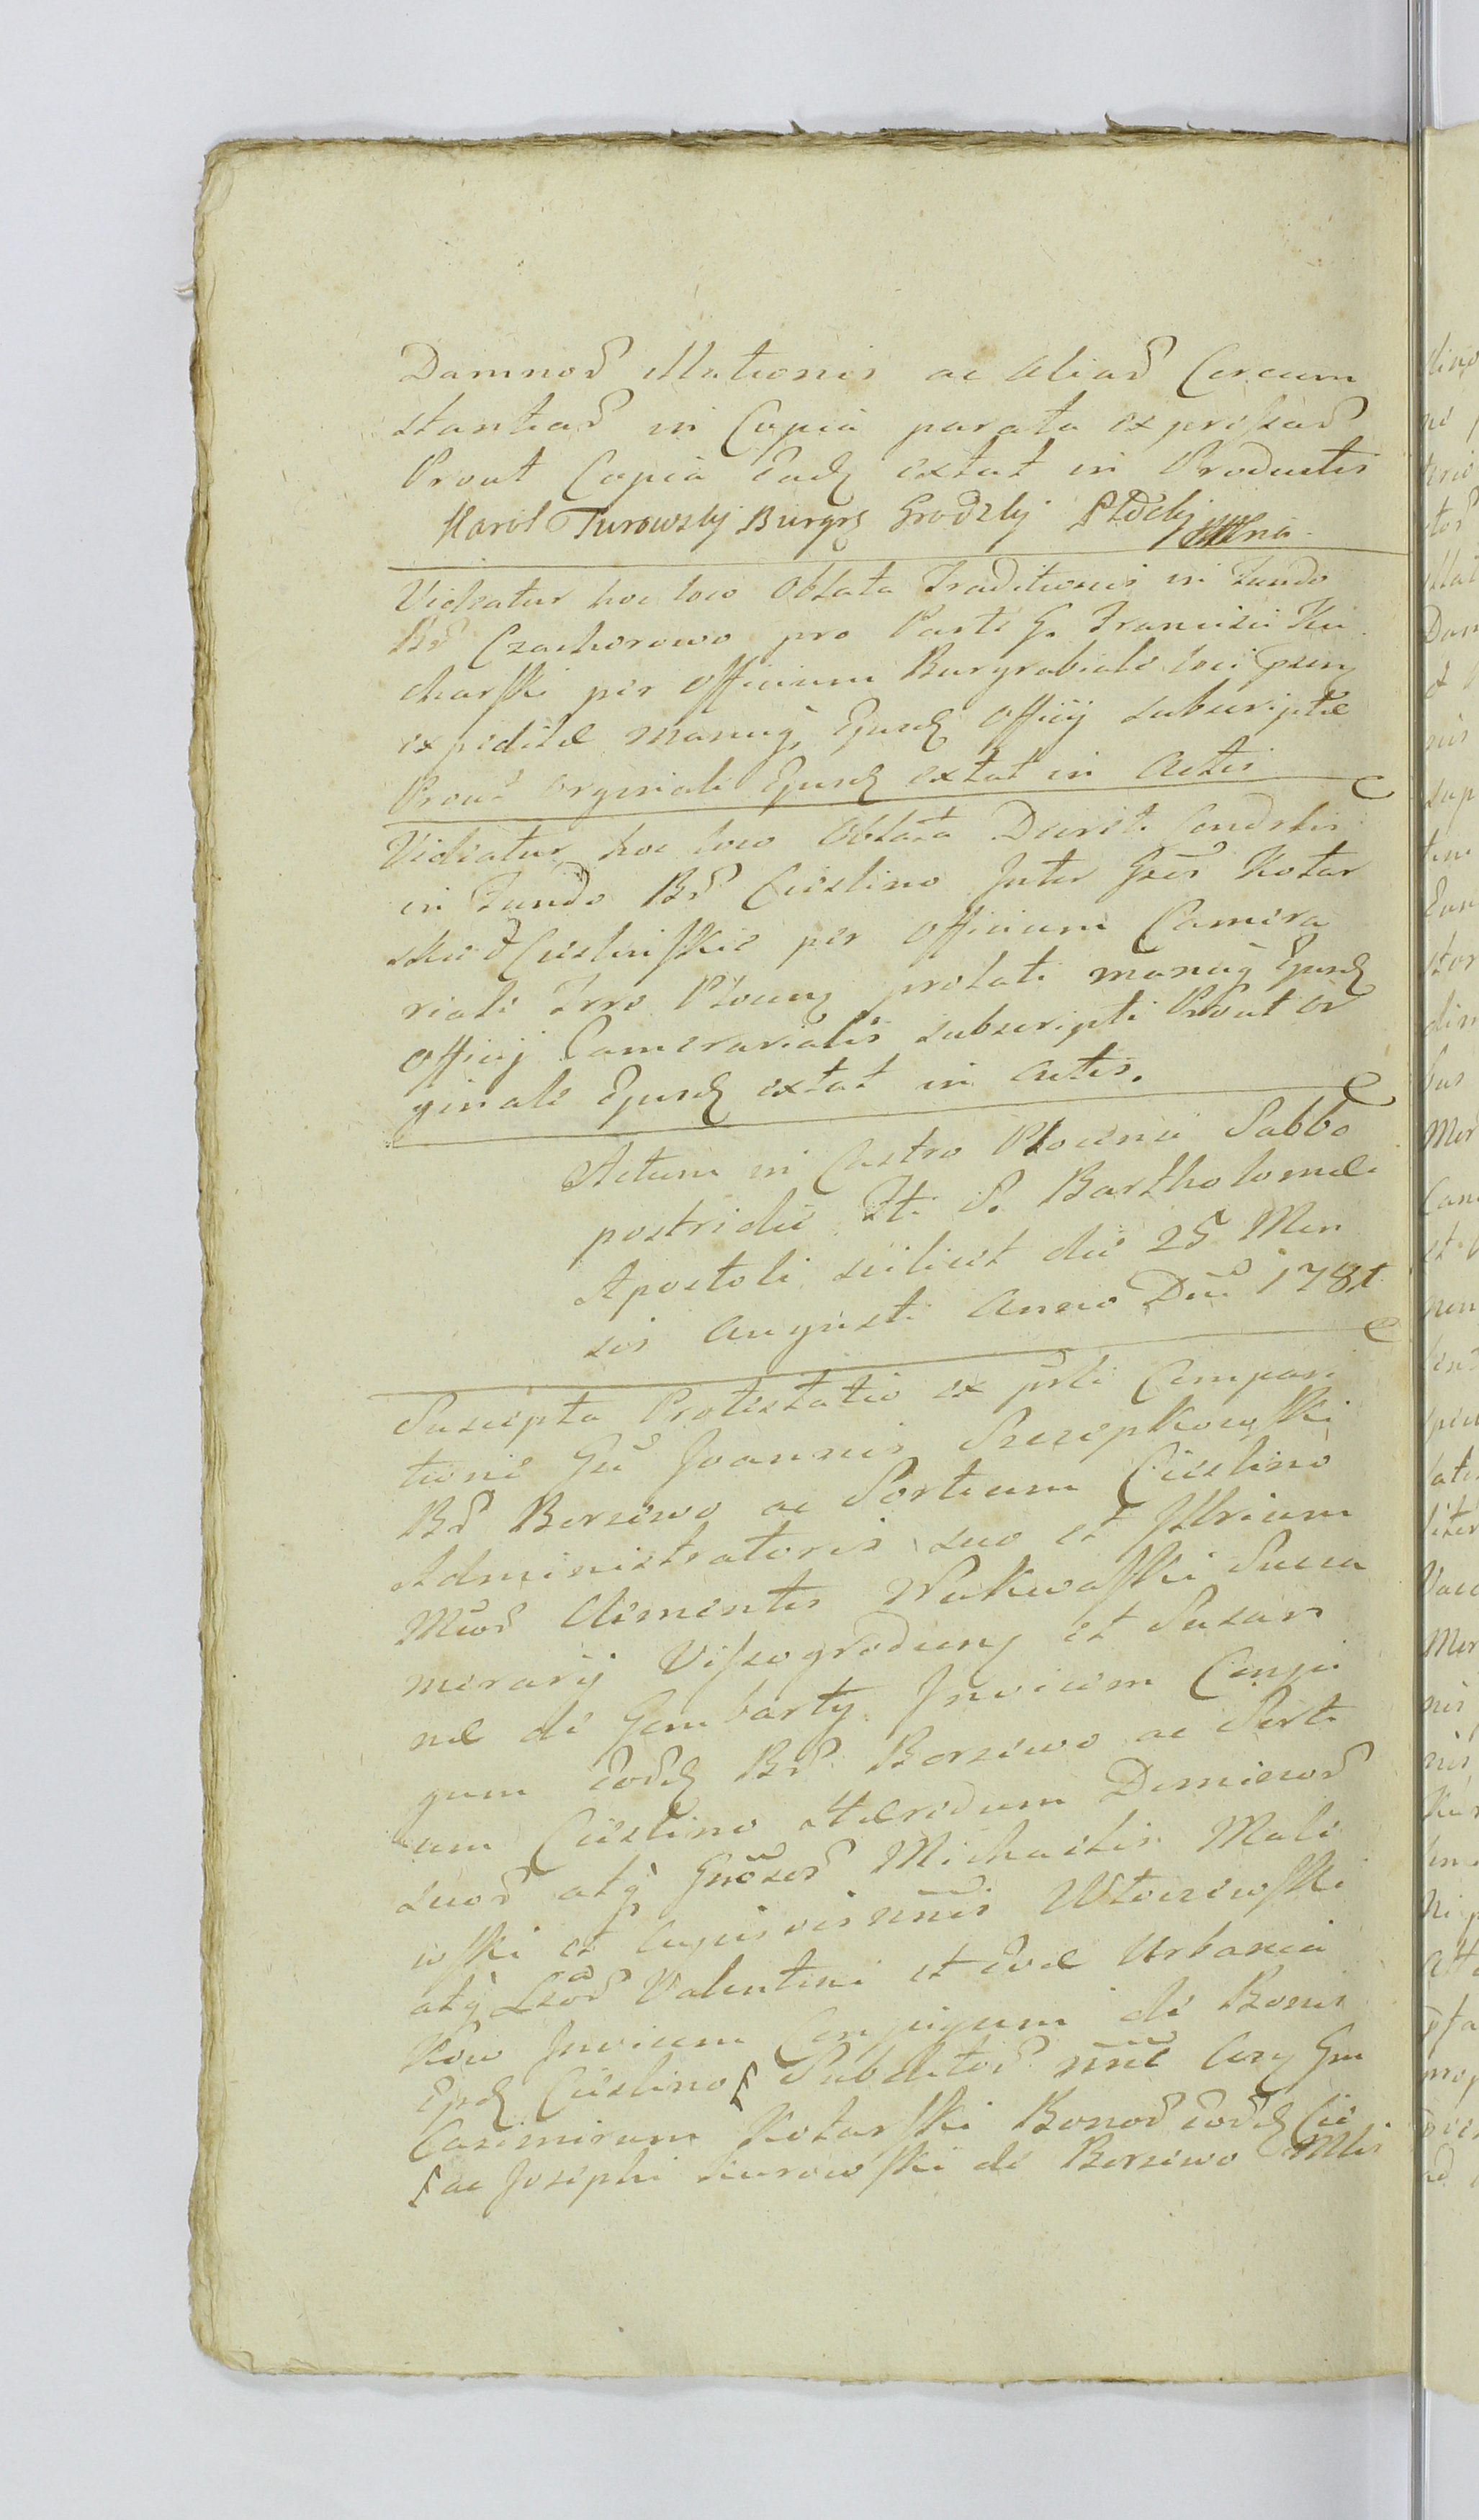 Damnor illationis ac aliar Circum
stantiar in Copia parata expressar
Prout Copia eadq extat in Productis
Karol Turowsky Burgrz Grodzky Płocky mpria
Videatur hoc loco Oblata Traditionis in Fundo
Br Czachorowo pro Parte G. Francisci Ku
charski per Officium Burgrabiale loci psenq
expeditæ manuq Ejusdq Officij subscriptæ
Prout Orginale Ejusdq extat in Actis
Videatur hoc loco Oblata Decreti Condslis
in Fundo Br Cieslino Inter Gsos Kotar
skie et Cieslinskie per Officium Camera
riale Trre Plocenq prolati manuq Ejusdq
Officij Camerarialis subscripti Prout Or
ginale Ejusdq extat in Actis.
Actum in Castro Plocensi Sabbo
postridie Fti S. Bartholomæi
Apostoli scilicet die 25 Men
sis Augusti Anno Dni 1781
Suscepta Protestatio ex psli Compari
tione Gsi Joannis Szczepkowski
Br Borzewo ac Sortium Cieslino
Administratoris suo et Illrium
Mcor Clementis Nakwaski Succa
merarij Vissogrodienq et Suzan
næ de Gembarty Invicem Conju
gum eordq Br Borzewo ac Sorti
um Cieslino Hæredum Dominor
suor atq Gnosor Michaelis Male
wski et cujusvis nnis Włoczewski
atq Laor Valentini et Evæ Urbaniá
kow Invicem Conjugum de Bonis
Ejsdq Cieslino Subditor nne Cerq Gm
Casimirum Kotarski Bonor eordq Cie
ac Josephi Kurowski de Borzewo Mlis